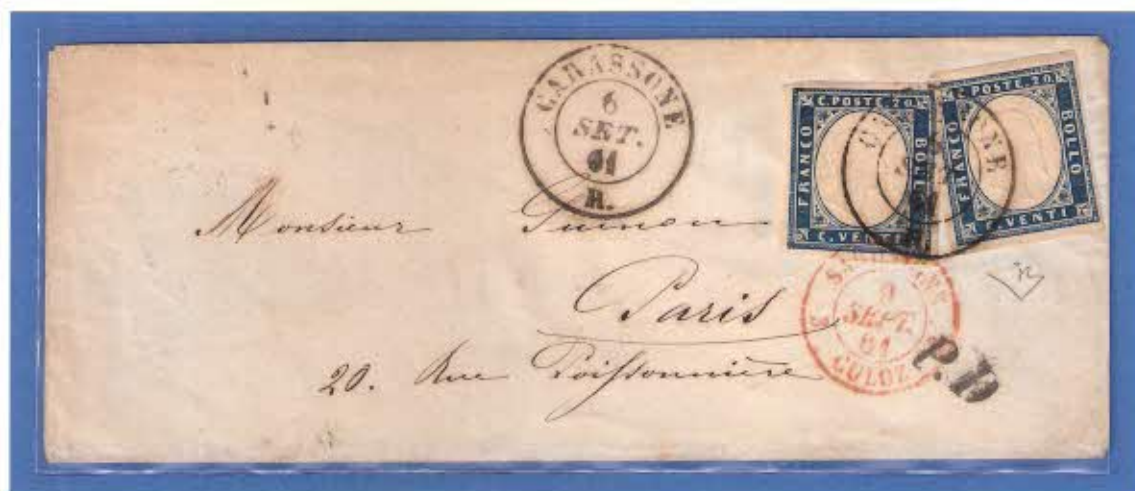 GARASSONE
6
SET.
61
R.
C. POSTE 20.
FRANCO
BOLLO
C. VENTI
C. POSTE 20.
FRANCO
BOLLO
C. VENTI
Monsieur
Paris
20. Rue Poissonnière
9
SEPT.
61
CULOZ
P.D